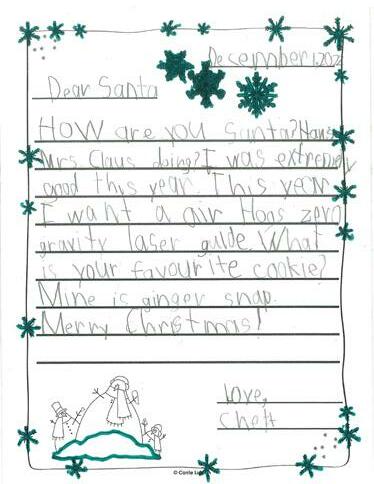 December 1, 202
Dear Santa
How are you Santa? Hows
Mrs Claus doing? I was extremey
good this year. This year
I want a air Hogs zero
gravity laser guide. What
is your favourite cookie?
Mine is ginger snap.
Merry Christmas!
love,
© Carrie